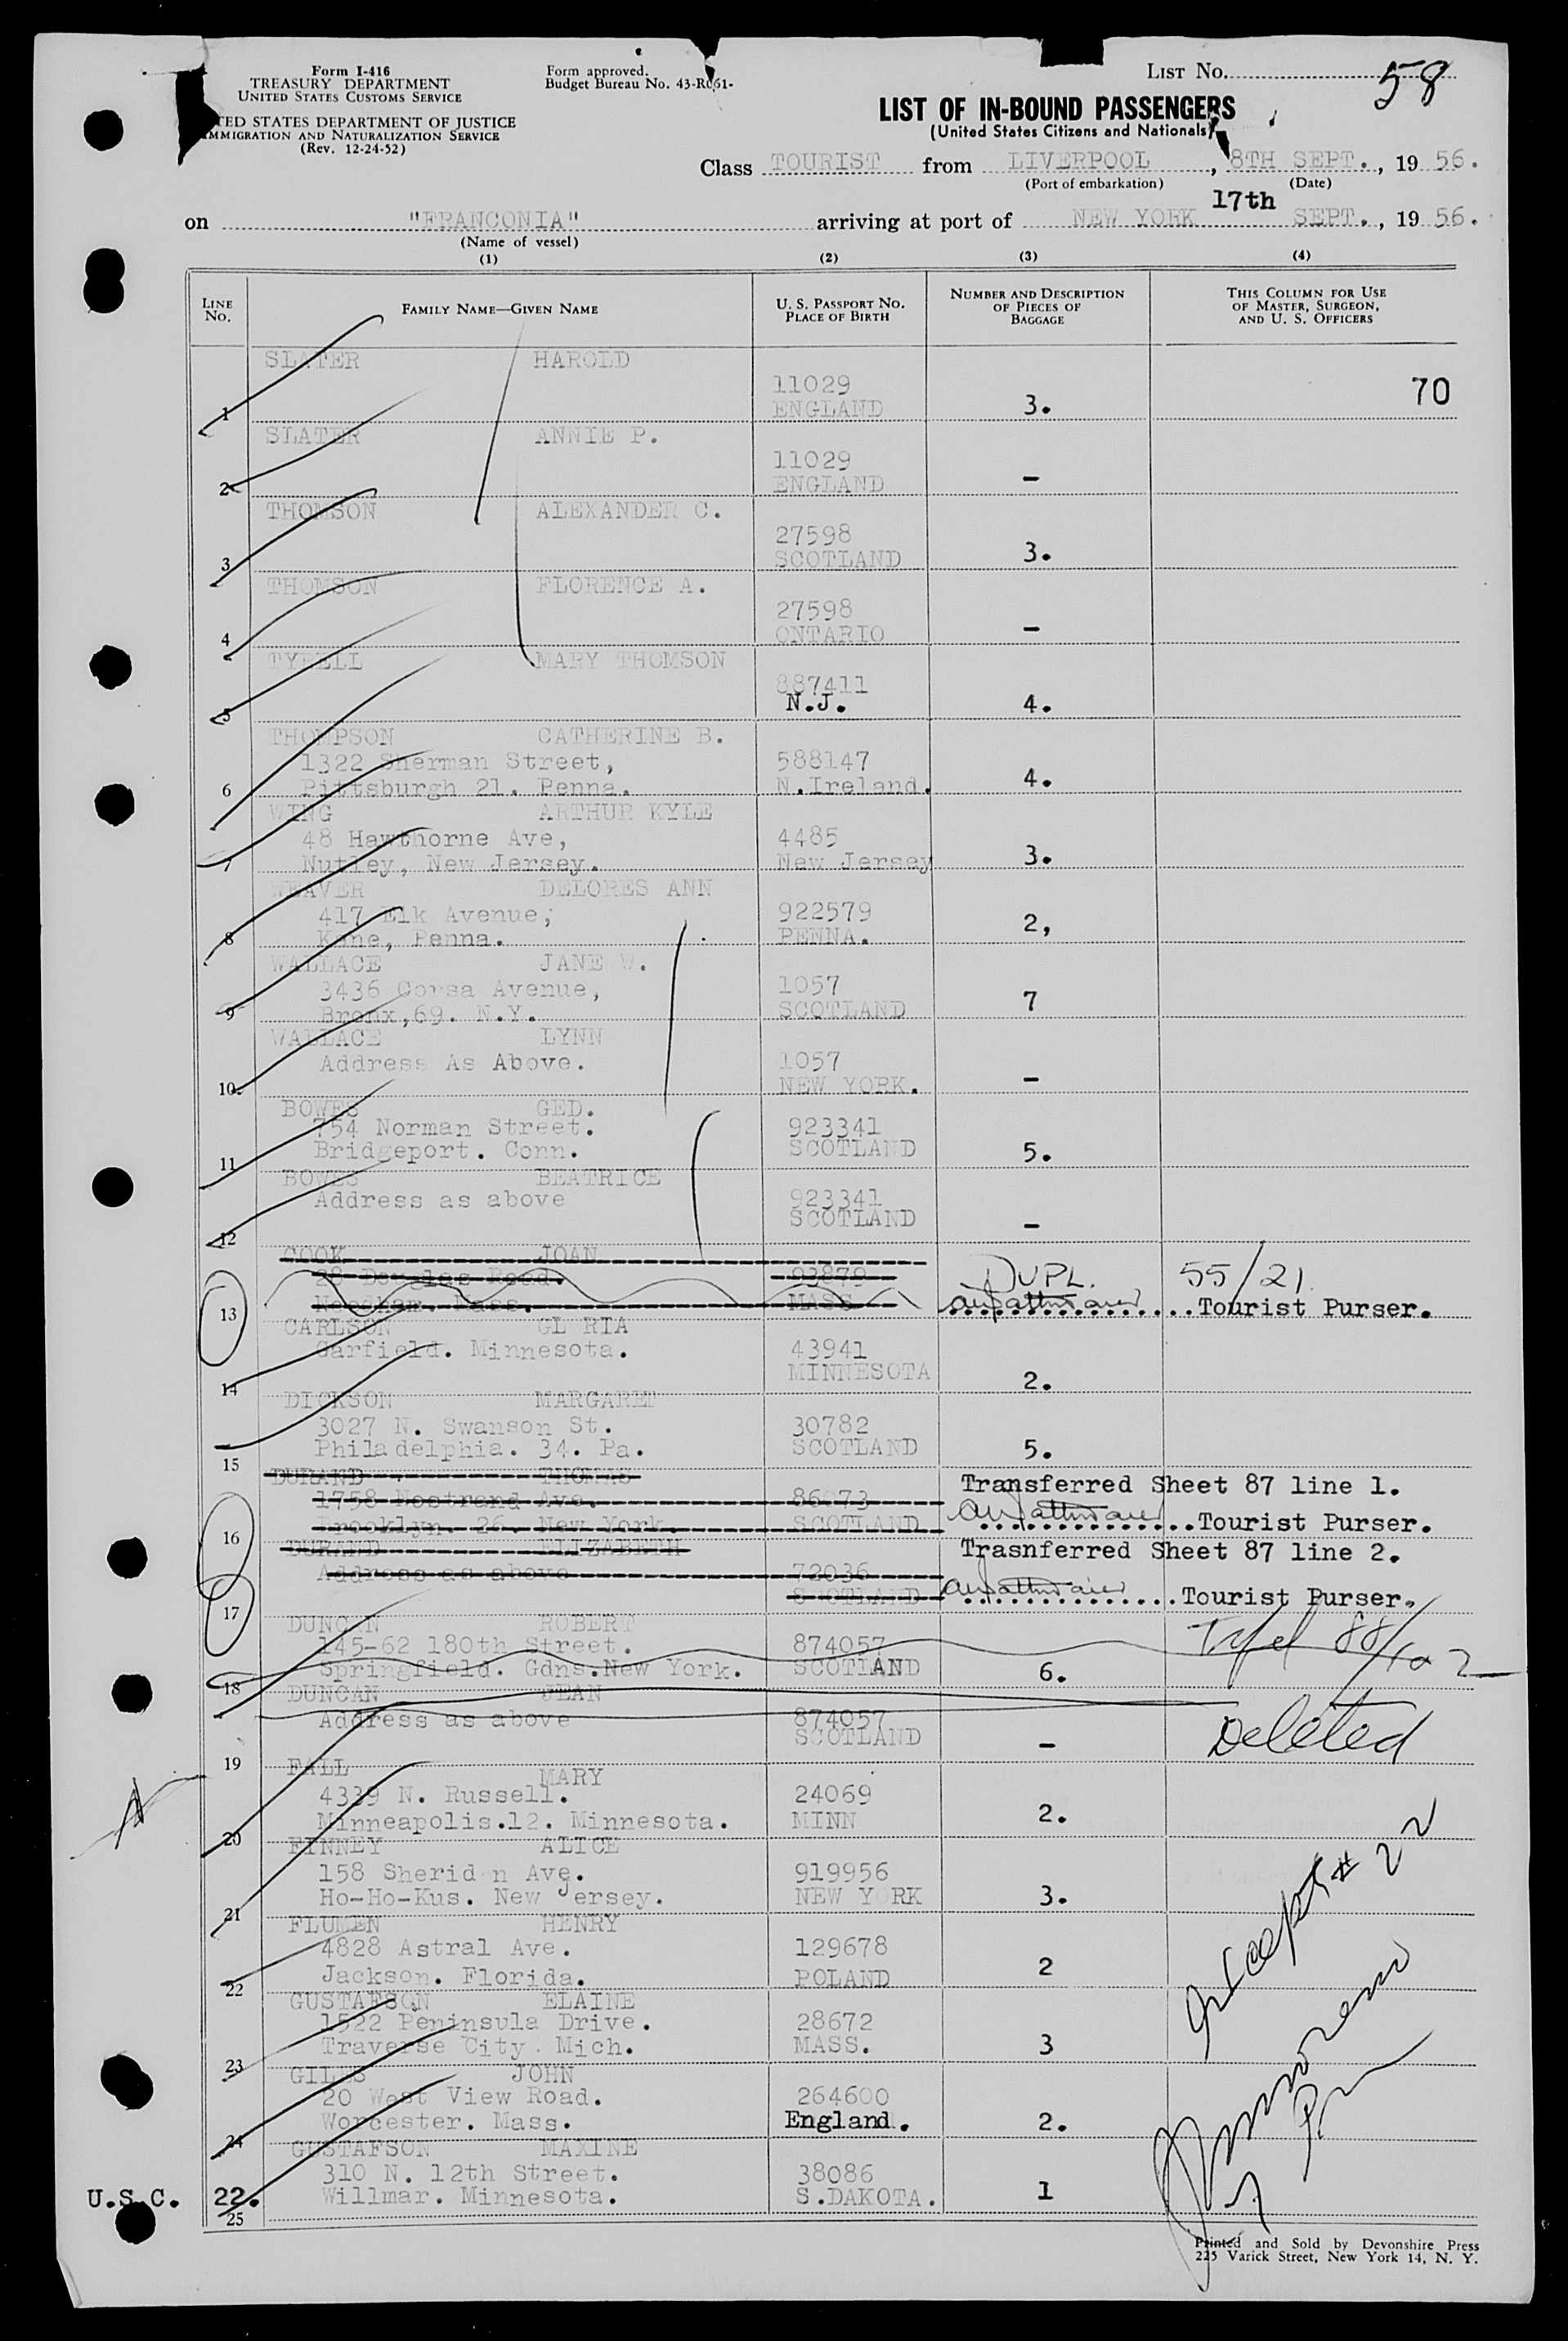 Form I-416
TREASURY DEPARTMENT
UNITED STATES CUSTOMS SERVICE
TED STATES DEPARTMENT OF JUSTICE
MMIGRATION AND NATURALIZATION SERVICE
(Rev. 12-24-52)
Form approved.
Budget Bureau No. 43-R061-
LIST No. 58
LIST OF IN-BOUND PASSENGERS
(United States Citizens and Nationals)
Class TOURIST from LIVERPOOL, 8TH SEPT., 19 56.
(Port of embarkation) (Date)
on "FRANCONIA" arriving at port of NEW YORK 17th SEPT., 19 56.
(Name of vessel)
(1) (2) (3) (4)
LINE No. FAMILY NAME—GIVEN NAME U. S. PASSPORT No. PLACE OF BIRTH NUMBER AND DESCRIPTION OF PIECES OF BAGGAGE THIS COLUMN FOR USE OF MASTER, SURGEON, AND U. S. OFFICERS
SLATER HAROLD
11029 70
1 ENGLAND 3.
SLATER ANNIE P.
11029
2 ENGLAND –
THOMSON ALEXANDER C.
27598
3 SCOTLAND 3.
THOMSON FLORENCE A.
27598
4 ONTARIO –
TYRELL MARY THOMSON
887411
5 N.J. 4.
THOMPSON CATHERINE B.
1322 Sherman Street, 588147
6 Pittsburgh 21. Penna. N.Ireland. 4.
WING ARTHUR KYLE
48 Hawthorne Ave, 4485
7 Nutley, New Jersey. New Jersey 3.
WEAVER DELORES ANN
417 Elk Avenue, 922579
8 Kane, Penna. PENNA. 2,
WALLACE JANE W.
3436 Corsa Avenue, 1057
9 Bronx,69. N.Y. SCOTLAND 7
WALLACE LYNN
Address As Above. 1057
10 NEW YORK. –
BOWES GED.
754 Norman Street. 923341
11 Bridgeport. Conn. SCOTLAND 5.
BOWES BEATRICE
Address as above 923341
12 SCOTLAND –
COOK JOAN
28 Douglas Road. 93879 DUPL. 55/21
13 Needham. Mass. MASS Tourist Purser.
CARLSON GL RIA
Garfield. Minnesota. 43941
14 MINNESOTA 2.
DICKSON MARGARET
3027 N. Swanson St. 30782
15 Philadelphia. 34. Pa. SCOTLAND 5.
DURAND THOMAS Transferred Sheet 87 line 1.
1758 Nostrand Ave. 86 73
16 Brooklyn. 26. New York. SCOTLAND Tourist Purser.
DURAND ELIZABETH Trasnferred Sheet 87 line 2.
Address as above 72036
17 S OTLAND Tourist Purser.
DUNCAN ROBERT
145-62 180th Street. 874057 88/
18 Springfield. Gdns.New York. SCOTLAND 6.
DUNCAN JEAN
Address as above 874057 Deleted
19 SCOTLAND –
FALL MARY
4339 N. Russell. 24069
20 Minneapolis.12. Minnesota. MINN 2.
FINNEY ALICE
158 Sherid n Ave. 919956
21 Ho-Ho-Kus. New Jersey. NEW Y RK 3.
FLUMEN HENRY
4828 Astral Ave. 129678
22 Jackson. Florida. POLAND 2
GUSTAFSON ELAINE
1522 Peninsula Drive. 28672
23 Traverse City. Mich. MASS. 3
GILES JOHN
20 West View Road. 264600
24 Worcester. Mass. England. 2.
GUSTAFSON MAXINE
310 N. 12th Street. 38086
U.S.C. 22. Willmar. Minnesota. S.DAKOTA. 1
25
# 22
Printed and Sold by Devonshire Press
225 Varick Street, New York 14, N. Y.